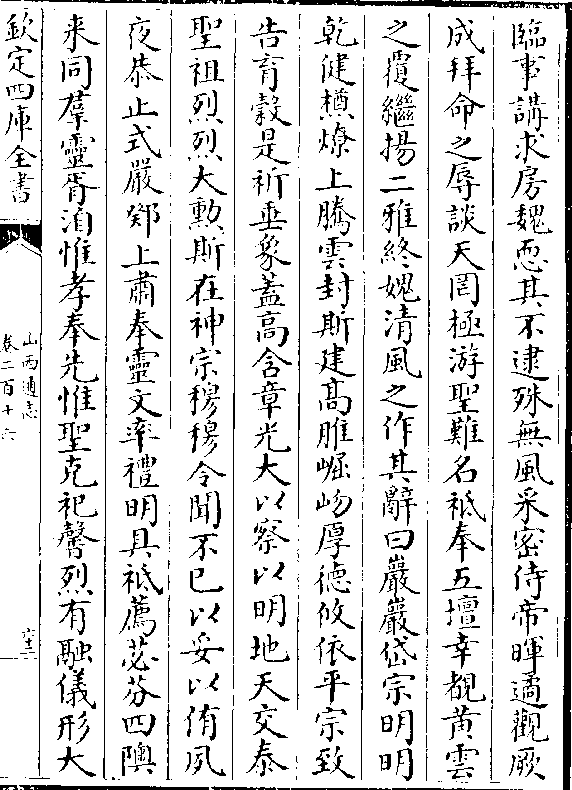 臨事講求房魏恧其不逮殊無風采密侍帝暉遹觀厥
成拜命之辱談天罔極游聖難名祗奉五壇幸覩黄雲
之覆繼揚二雅終媿清風之作其辭曰巖巖岱宗明明
乾健槱燎上騰雲封斯建髙脽崛岉厚德攸依平宗致
告育穀是祈垂象蓋高含章光大以察以明地天交泰
聖祖烈烈大勲斯在神宗穆穆令聞不已以妥以侑夙
夜恭止式嚴郊上肅奉靈文率禮明具祗薦苾芬四隩
来同羣靈胥洎惟孝奉先惟聖克祀馨烈有融儀形大
欽定四庫全書
山西通志
卷二百十六
六三